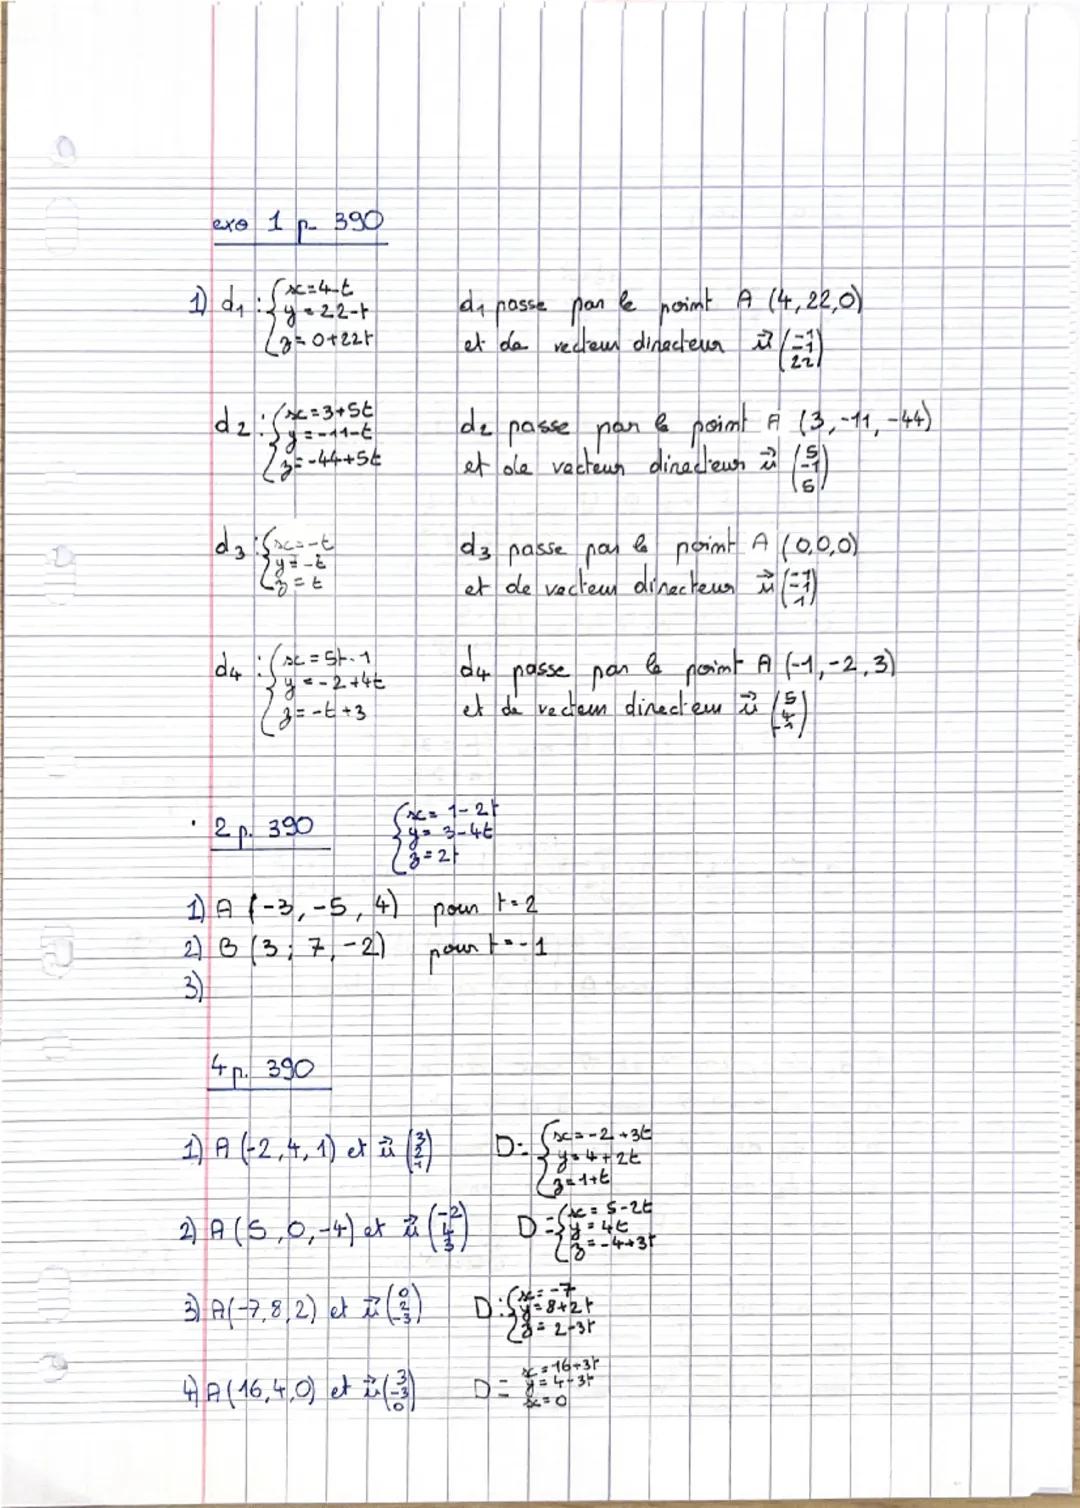 exo 1 p. 390
1) d1 : { x=4-t
y = 22-t
z = 0+22t
d1 passe par le point A (4,22,0)
et de vecteur directeur u→ (-1
-1
22)
d2 : { x=3+5t
y = -11-t
z = -44+5t
d2 passe par le point A (3,-11,-44)
et de vecteur directeur u→ (5
-1
5)
d3 : { x=-t
y = -t
z = t
d3 passe par le point A (0,0,0)
et de vecteur directeur u→ (-1
-1
1)
d4 : { x = 5t-1
y = -2+4t
z = -t+3
d4 passe par le point A (-1,-2,3)
et de vecteur directeur u→ (5
4
-1)
· 2 p. 390
{ x= 1-2t
y= 3-4t
z=2t
1) A (-3,-5,4) pour t=2
2) B (3; 7,-2) pour t=-1
3)
4 p. 390
1) A (-2,4,1) et u→ (3
2
1)
D: { x=-2+3t
y=4+2t
z=1+t
2) A (5,0,-4) et u→ (-2
4
3)
D = { x = 5-2t
y = 4t
z = -4+3t
3) A(-7,8,2) et u→ (0
2
-3)
D: { x=-7
y=8+2t
z= 2-3t
4) A(16,4,0) et u→ (3
-3
0)
D = x =16+3t
y = 4-3t
x=0